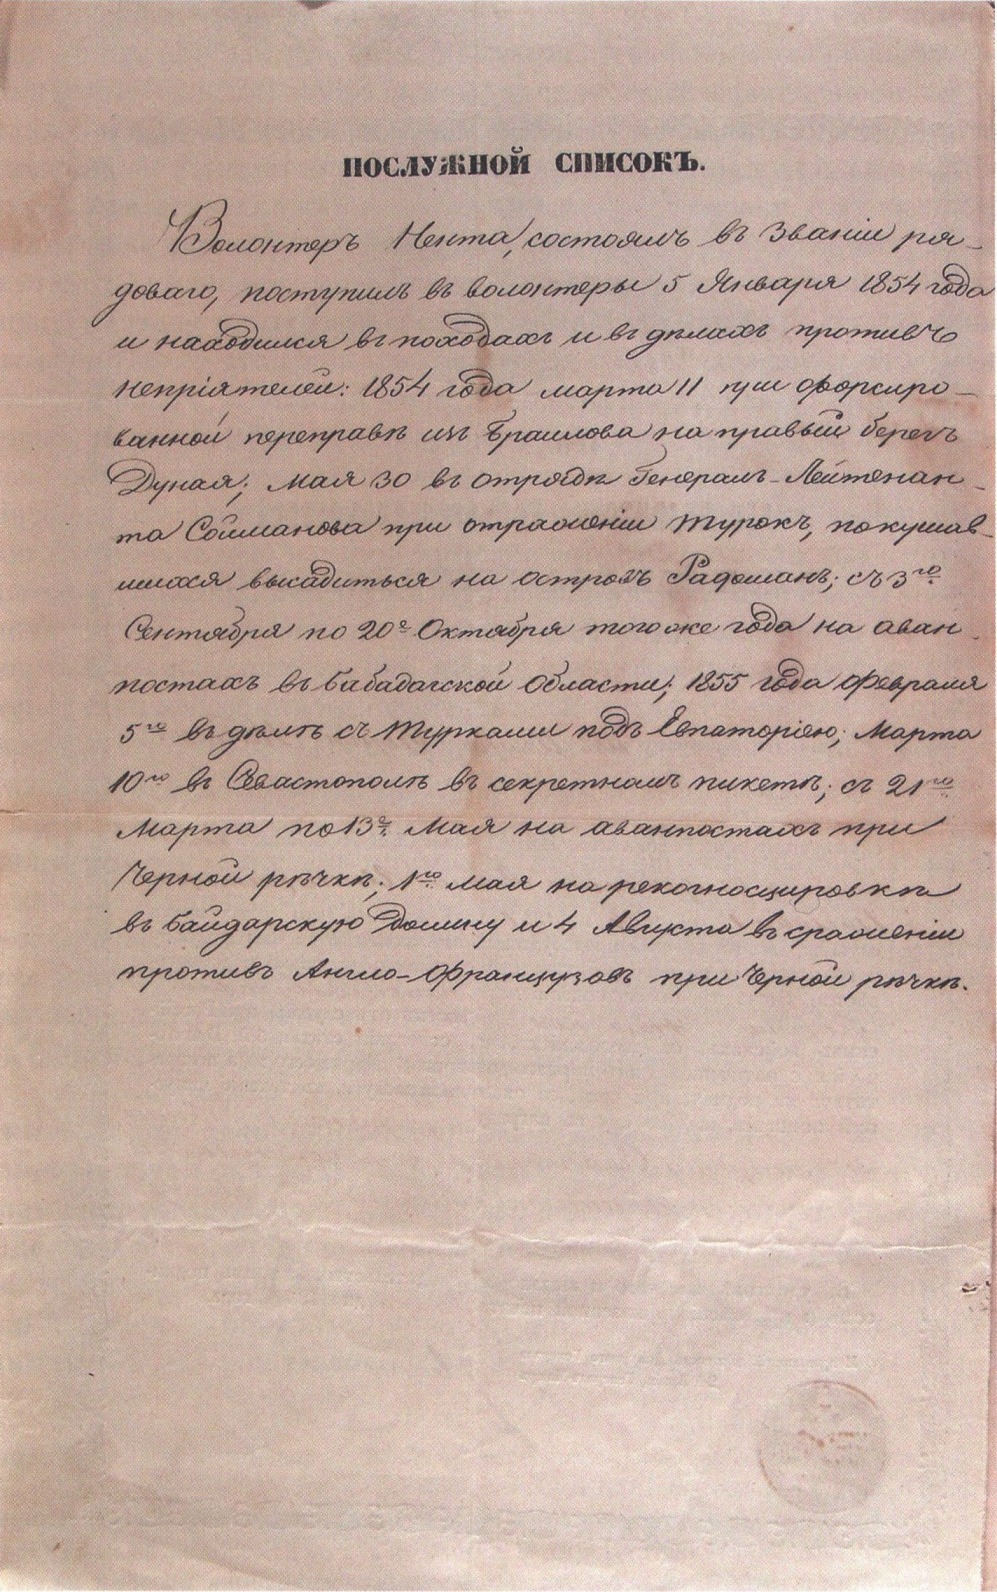 ПОСЛУЖНОЙ СПИСОКЪ.
Волонтеръ Нента, состоялъ въ званіи ря-
доваго, поступилъ въ волонтеры 5 Января 1854 года
и находился въ походахъ и въ дѣлахъ противъ
непріятелей: 1854 года марта 11 при форсиро-
ванной переправѣ изъ Браилова на правый берегъ
Дуная; мая 30 въ отрядѣ Генералъ-Лейтенан-
та Соймонова при отраженіи турокъ, покушав-
шихся высадиться на островъ Радоманъ; съ 3го
Сентября по 20е Октября того же года на аван-
постахъ въ Бабадагской области; 1855 года февраля
5го въ дѣлѣ съ турками подъ Евпаторіею; Марта
10го въ Севастополѣ въ секретномъ пикетѣ; съ 21го
Марта по 13е Мая на аванпостахъ при
Черной рѣчкѣ; 1го мая на рекогносцировкѣ
въ Байдарскую долину и 4 Августа въ сраженіи
противъ Англо-Французовъ при Черной рѣчкѣ.